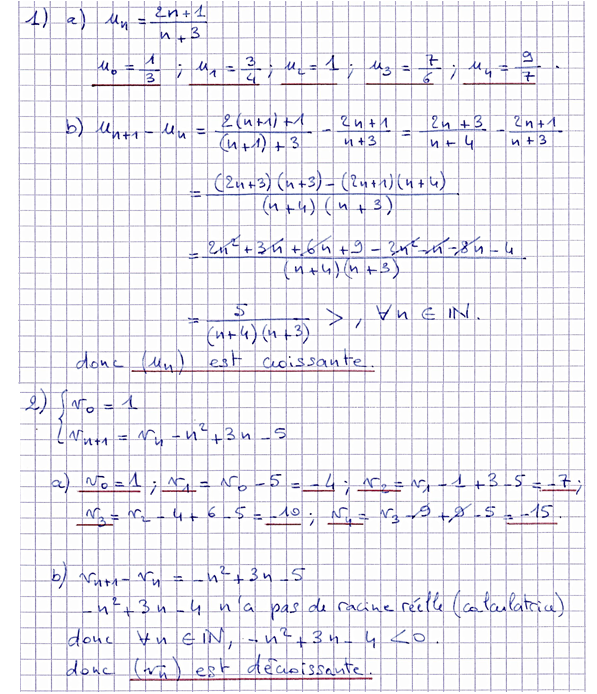 1) a) uₙ = (2n+1)/(n+3)
u₀ = 1/3 ; u₁ = 3/4 ; u₂ = 1 ; u₃ = 7/6 ; u₄ = 9/7 .
b) uₙ₊₁ - uₙ = (2(n+1)+1)/((n+1)+3) - (2n+1)/(n+3) = (2n+3)/(n+4) - (2n+1)/(n+3)
= ((2n+3)(n+3) - (2n+1)(n+4))/((n+4)(n+3))
= (2n² + 3n + 6n + 9 - 2n² - n - 8n - 4)/((n+4)(n+3))
= 5/((n+4)(n+3)) > , ∀n ∈ IN.
donc (uₙ) est croissante.
2) { v₀ = 1
vₙ₊₁ = vₙ - n² + 3n - 5
a) v₀ = 1 ; v₁ = v₀ - 5 = -4 ; v₂ = v₁ - 1 + 3 - 5 = -7 ;
v₃ = v₂ - 4 + 6 - 5 = -10 ; v₄ = v₃ - 9 + 9 - 5 = -15 .
b) vₙ₊₁ - vₙ = -n² + 3n - 5
-n² + 3n - 4 n'a pas de racine réelle (calculatrice)
donc ∀n ∈ IN, -n² + 3n - 4 < 0 .
donc (vₙ) est décroissante.